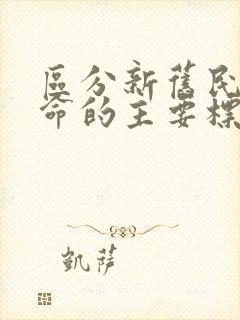 區分新舊民
命的主要標
凱薩